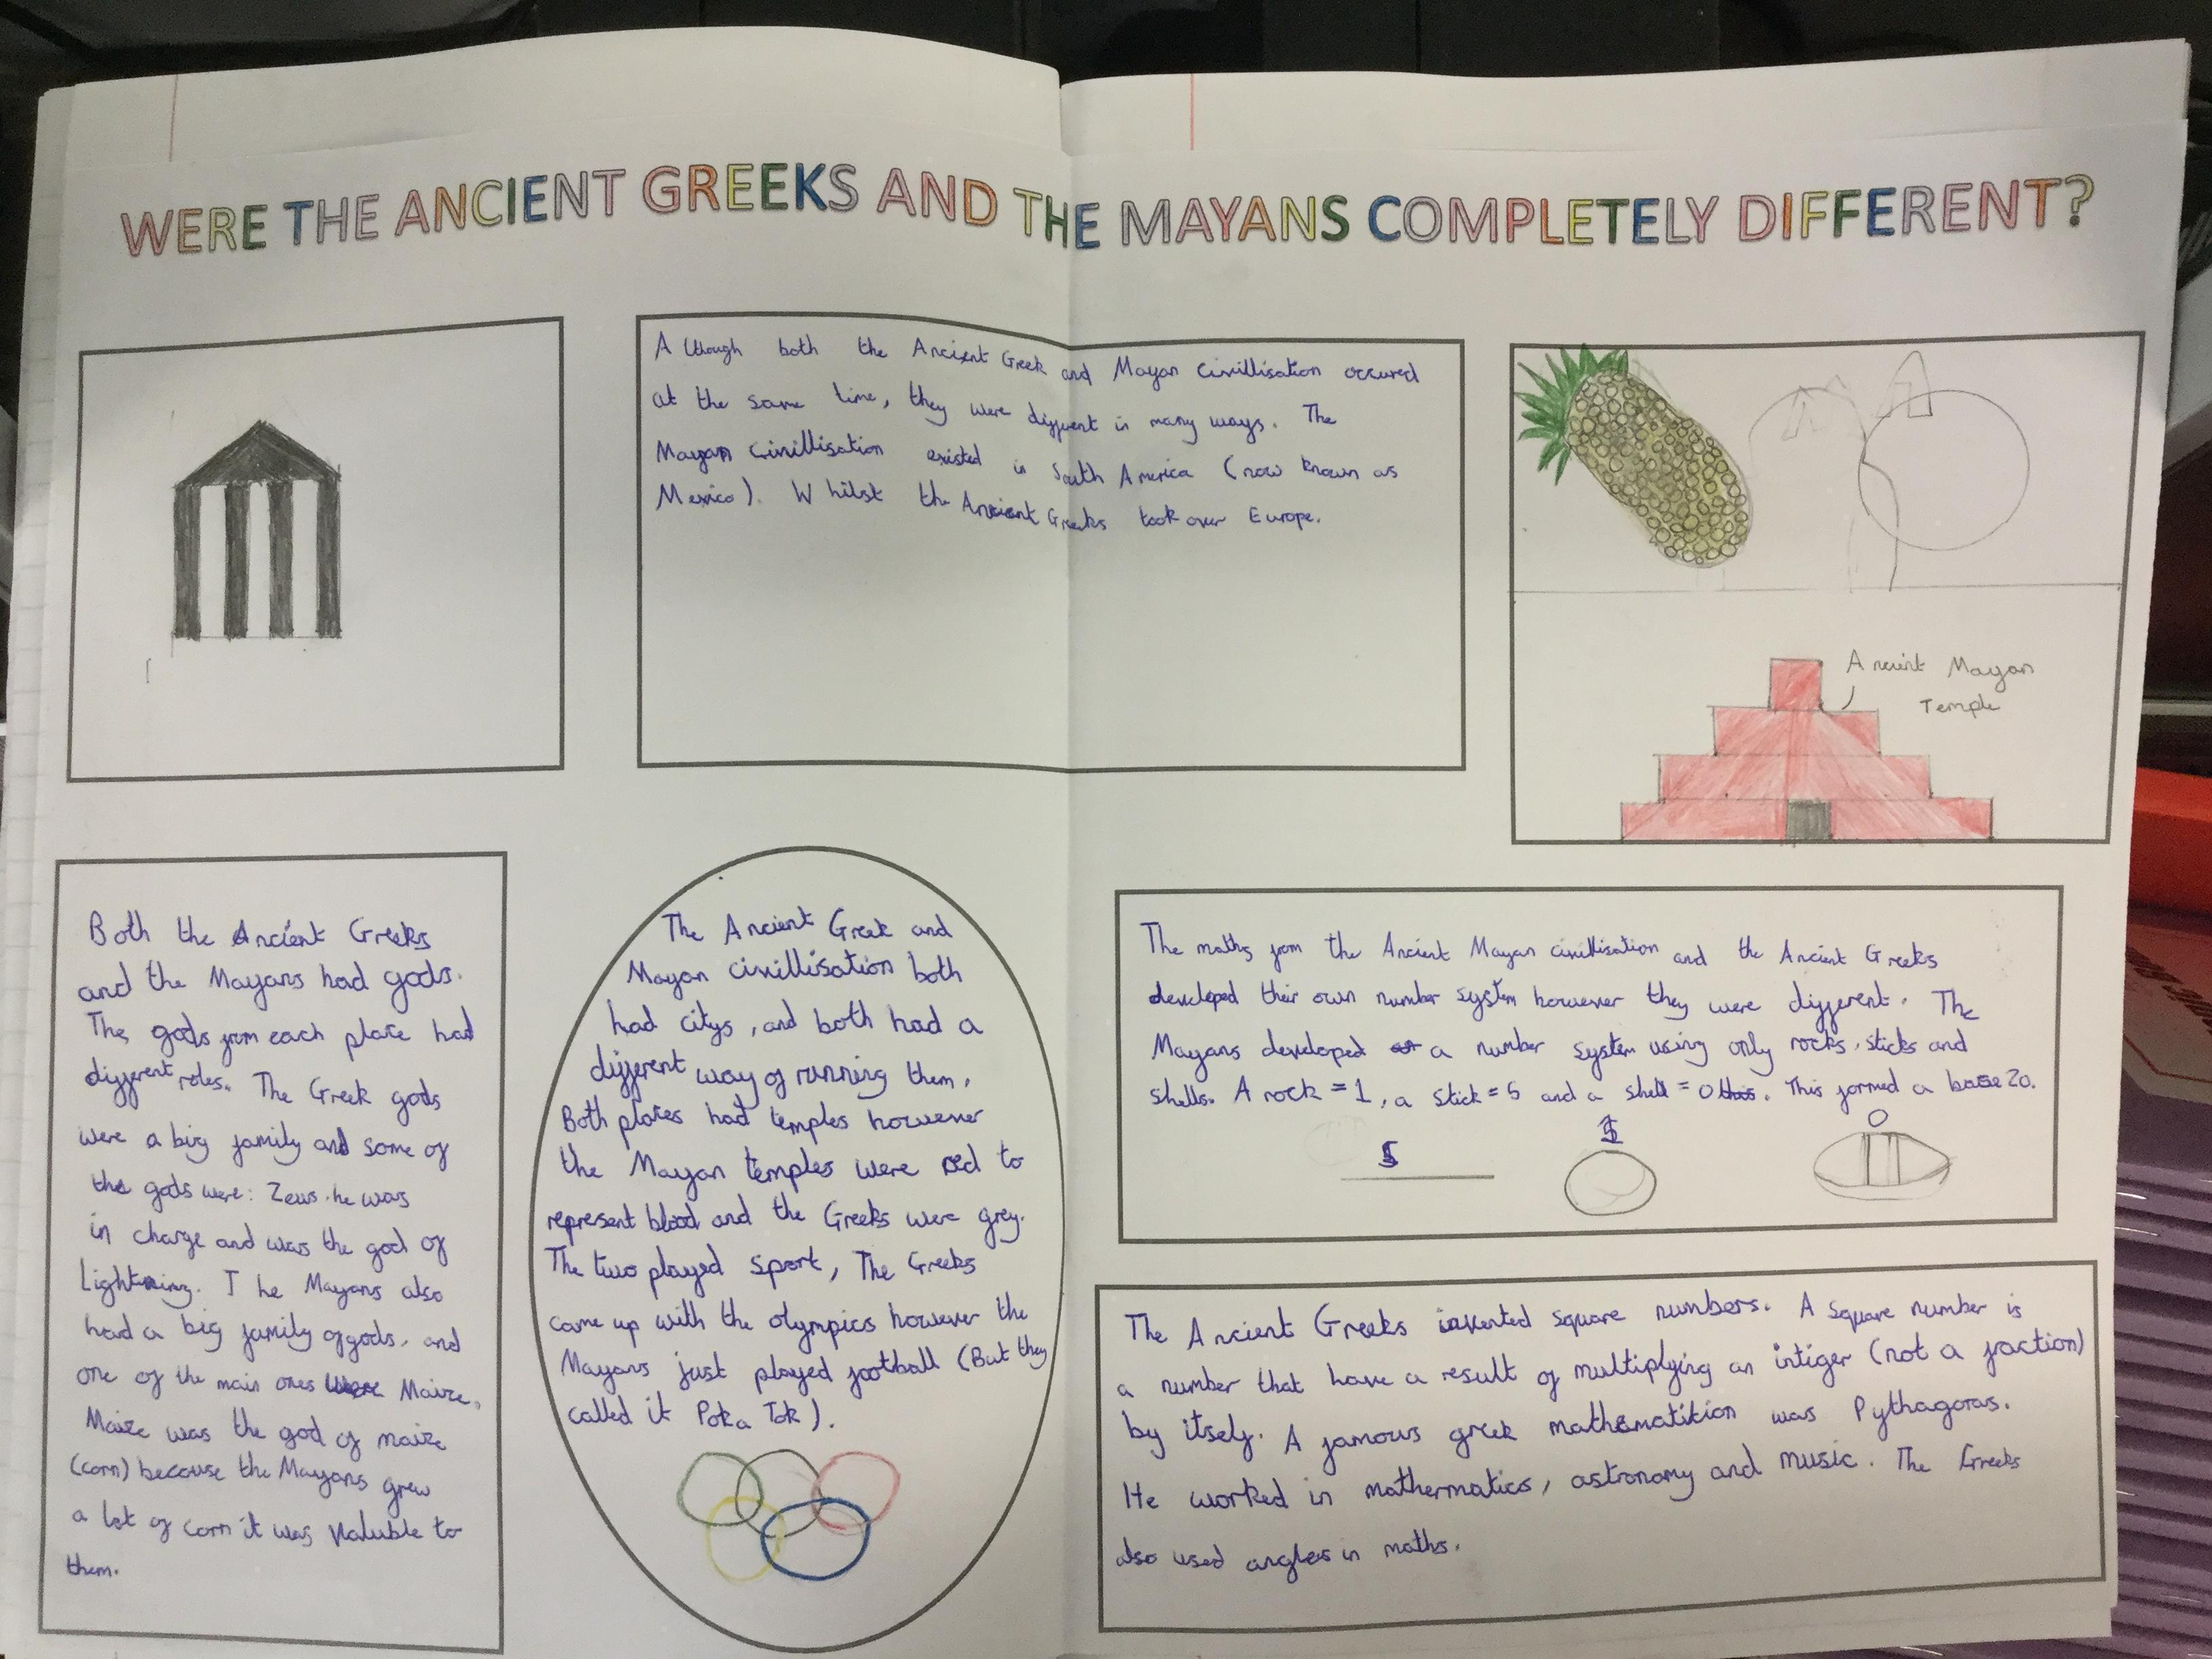 WERE THE ANCIENT GREEKS AND THE MAYANS COMPLETELY DIFFERENT?
Although both the Ancient Greek and Mayan Civillisation occured
at the same time, they were different in many ways. The
Mayan Civillisation existed in South America (now known as
Mexico). Whilst the Ancient Greeks took over Europe.
Ancient Mayan
Temple
Both the Ancient Greeks
and the Mayans had gods.
The gods from each place had
different roles. The Greek gods
were a big family and some of
the gods were: Zeus. he was
in charge and was the god of
Lightning. The Mayans also
had a big family of gods, and
one of the main ones were Maize.
Maize was the god of maize
(corn) because the Mayans grew
a lot of corn it was Valuble to
them.
The Ancient Greek and
Mayan civillisation both
had citys, and both had a
different way of running them.
Both places had temples however
the Mayan temples were red to
represent blood and the Greeks were grey.
The two played sport, The Greeks
came up with the olympics however the
Mayans just played football (But they
called it Poka Tok).
The maths from the Ancient Mayan civillisation and the Ancient Greeks
developed their own number system however they were different. The
Mayans developed a number system using only rocks, sticks and
shells. A rock = 1, a stick = 5 and a shell = 0. This formed a base 20.
5 1 0
The Ancient Greeks invented square numbers. A square number is
a number that have a result of multiplying an intiger (not a fraction)
by itself. A famous greek mathematition was Pythagoras.
He worked in mathermatics, astronomy and music. The Greeks
also used angles in maths.